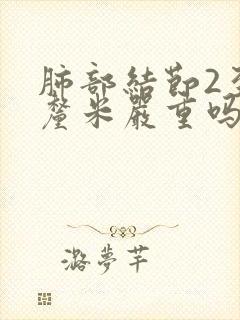 肺部結節2至
釐米嚴重吗
潞夢芊